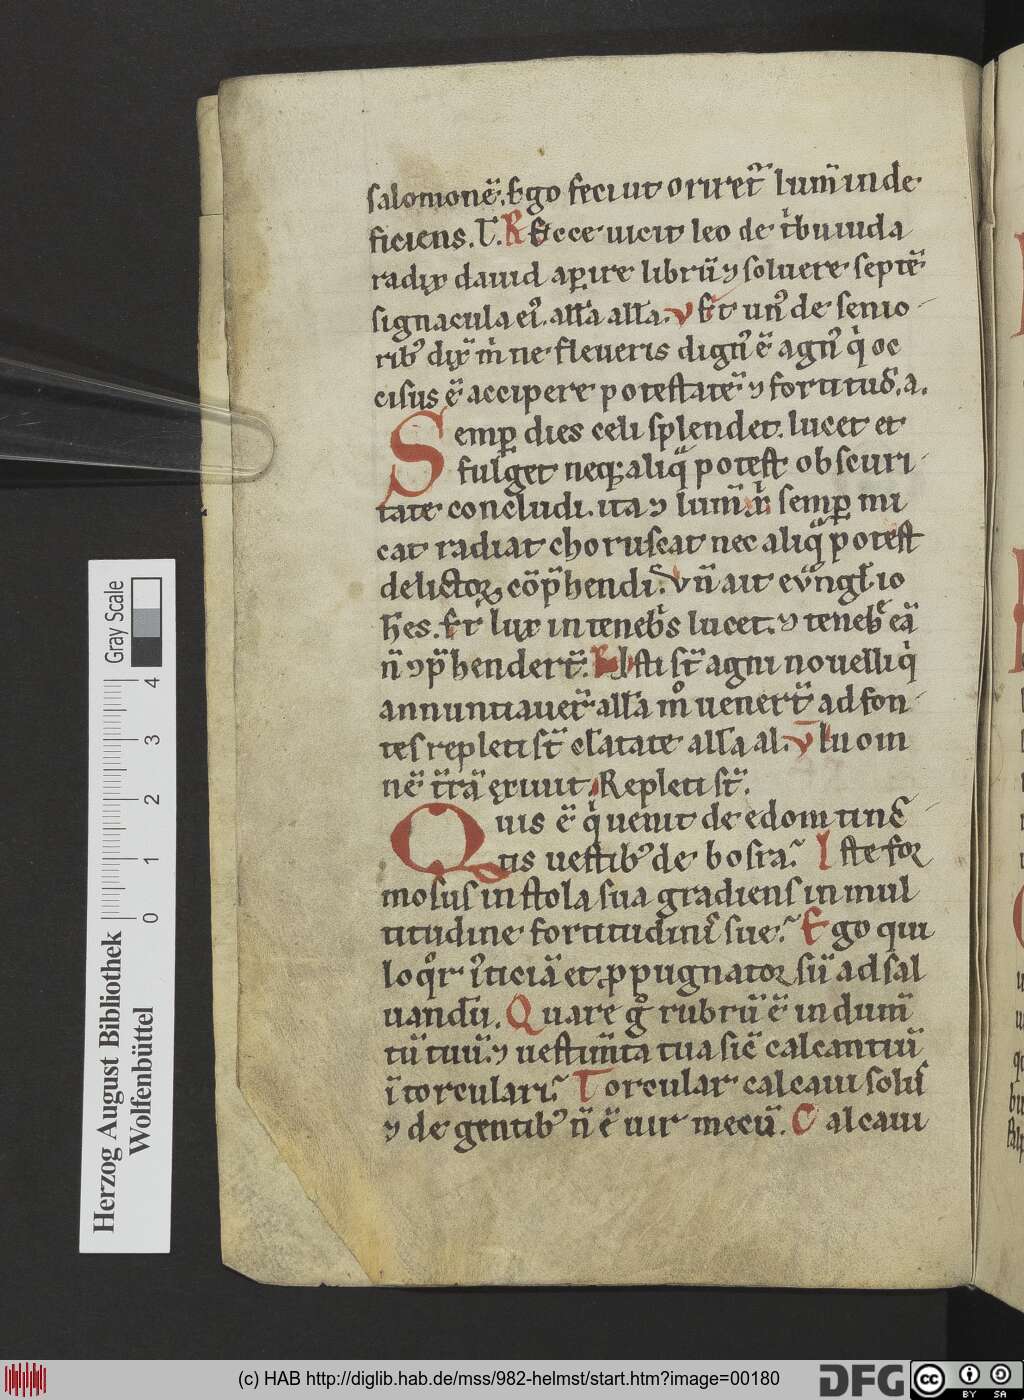 salomonē. Ego feci ut oriret᷑ lum̄ inde
ficiens. T. R Ecce uicit leo de tͥbu iuda
radix dauid aꝑire librū ⁊ soluere septē
signacula ei᷒. all̄a all̄a. v Et un᷒ de senio
rib᷒ dix̄ m̄ ne fleueris dign᷒ ē agn᷒ qͥ oc
cisus ē accipere potestatē ⁊ fortitud̄. a.
Semꝑ dies celi splendet. lucet et
fulget neq; aliqͣ potest obscuri
tate concludi. ita ⁊ lum̄ xͥ semꝑ mi
cat radiat choruscat nec aliqͣ potest
delictoꝝ cōp̄hendi. Vn̄ ait evngl̄io
h̄es. Et lux in teneb̄s lucet. ⁊ teneb̄ eā
n̄ ꝯp̄hendert̄. R Isti st̄ agni nouelli qͥ
annuntiauer̄ all̄a mͦ uenert̄ ad fon
tes repleti st̄ cl̄atate all̄a al. v In om
nē t̄rā exiuit. Repleti st̄.
Quis ē qͥ uenit de edom tinc̄
tis uestib᷒ de bosra. Iste for
mosus in stola sua gradiens in mul
titudine fortitudinis̄ sue. Ego qui
loqͦr i᷒ticiā et ꝓpugnator sū ad sal
uandū. Quare gͦ rubrū ē indum̄
tū tuū. ⁊ uestim̄ta tua sic̄ calcantiū
ī torculari. Torcular calcaui solus
⁊ de gentib᷒ n̄ ē uir mecū. Calcaui
Herzog August Bibliothek
Wolfenbüttel
Gray Scale
0 1 2 3 4
(c) HAB http://diglib.hab.de/mss/982-helmst/start.htm?image=00180
DFG
cc BY SA